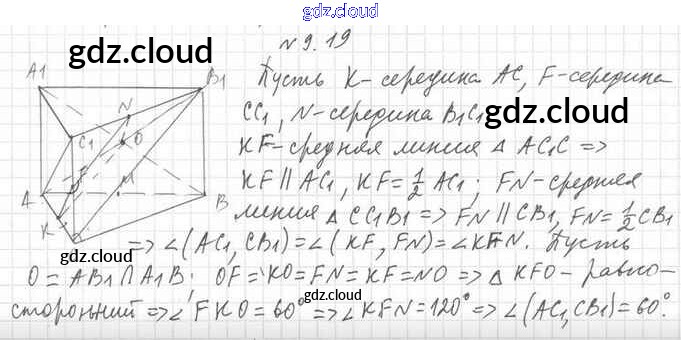 gdz.cloud
N 9.19
gdz.cloud
A1 B1 N C1 O F A M B K
Пусть K - середина AC, F - середина
CC1, N - середина B1C1 gdz.cloud
KF - средняя линия Δ AC1C =>
KF || AC1, KF = 1/2 AC1; FN - средняя
линия Δ CC1B1 => FN || CB1, FN = 1/2 CB1
=> ∠(AC1, CB1) = ∠(KF, FN) = ∠KFN. Пусть
O = AB1 ∩ A1B; OF = KO = FN = KF = NO => Δ KFO - равно-
сторонний => ∠FKO = 60° => ∠KFN = 120° => ∠(AC1, CB1) = 60°.
gdz.cloud
gdz.cloud